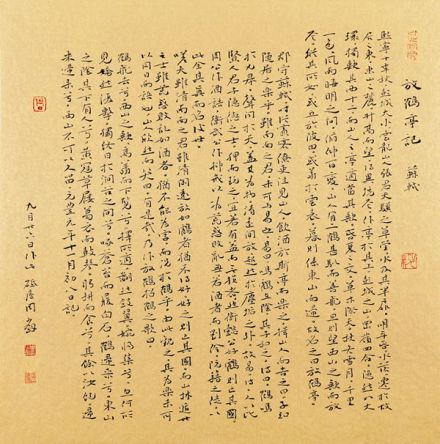 放鶴亭記 蘇軾
熙寧十年秋彭城大水雲龍山人張君天驥之草堂水及其半扉明年春水落遷於故
居之東東山之麓升高而望得異境焉作亭於其上彭城之山岡嶺四合隱然如大
環獨缺其西十二而山人之亭適當其缺春夏之交草木際天秋冬雪月千里
一色風雨晦明之間俯仰百變山人有二鶴甚馴而善飛旦則望西山之缺而放
焉縱其所如或立於陂田或翔於雲表暮則傃東山而歸故名之曰放鶴亭
郡守蘇軾時從賓客僚吏往見山人飲酒於斯亭而樂之揖山人而告之曰子知
隱居之樂乎雖南面之君未可與易也易曰鳴鶴在陰其子和之詩曰鶴鳴
於九皋聲聞於天蓋其為物清遠閒放超然於塵垢之外故易詩人以比
賢人君子隱德之士狎而玩之宜若有益而無損者然衛懿公好鶴則亡其國
周公作酒誥衛武公作抑戒以為荒惑敗亂無若酒者而劉伶阮籍之徒以
此全其真而名後世
嗟夫南面之君雖清遠閒放如鶴者猶不得好好之則亡其國而山林遁世
之士雖荒惑敗亂如酒者猶不能為害而況於鶴乎由此觀之其為樂未可
以同日而語也山人欣然而笑曰有是哉乃作放鶴招鶴之歌曰
鶴飛去兮西山之缺高翔而下覽兮擇所適翻然斂翼宛將集兮忽何所
見矯然而復擊獨終日於澗谷之間兮啄蒼苔而履白石鶴歸來兮東山
之陰其下有人兮黃冠草屨葛衣而鼓琴躬耕而食兮其餘以汝飽歸
來歸來兮西山不可以久留元豐元年十一月初八日記
九月廿八日作